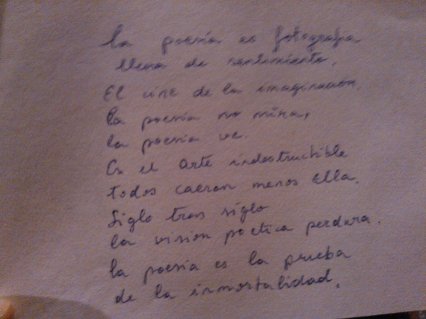 la poesía es fotografa
llena de sentimiento.
El cine de la imaginación.
la poesía no mira,
la poesía ve.
Es el arte indestructible
todos caeran menos ella.
Siglo tras siglo
la vision poetica perdura.
la poesía es la prueba
de la inmortalidad.